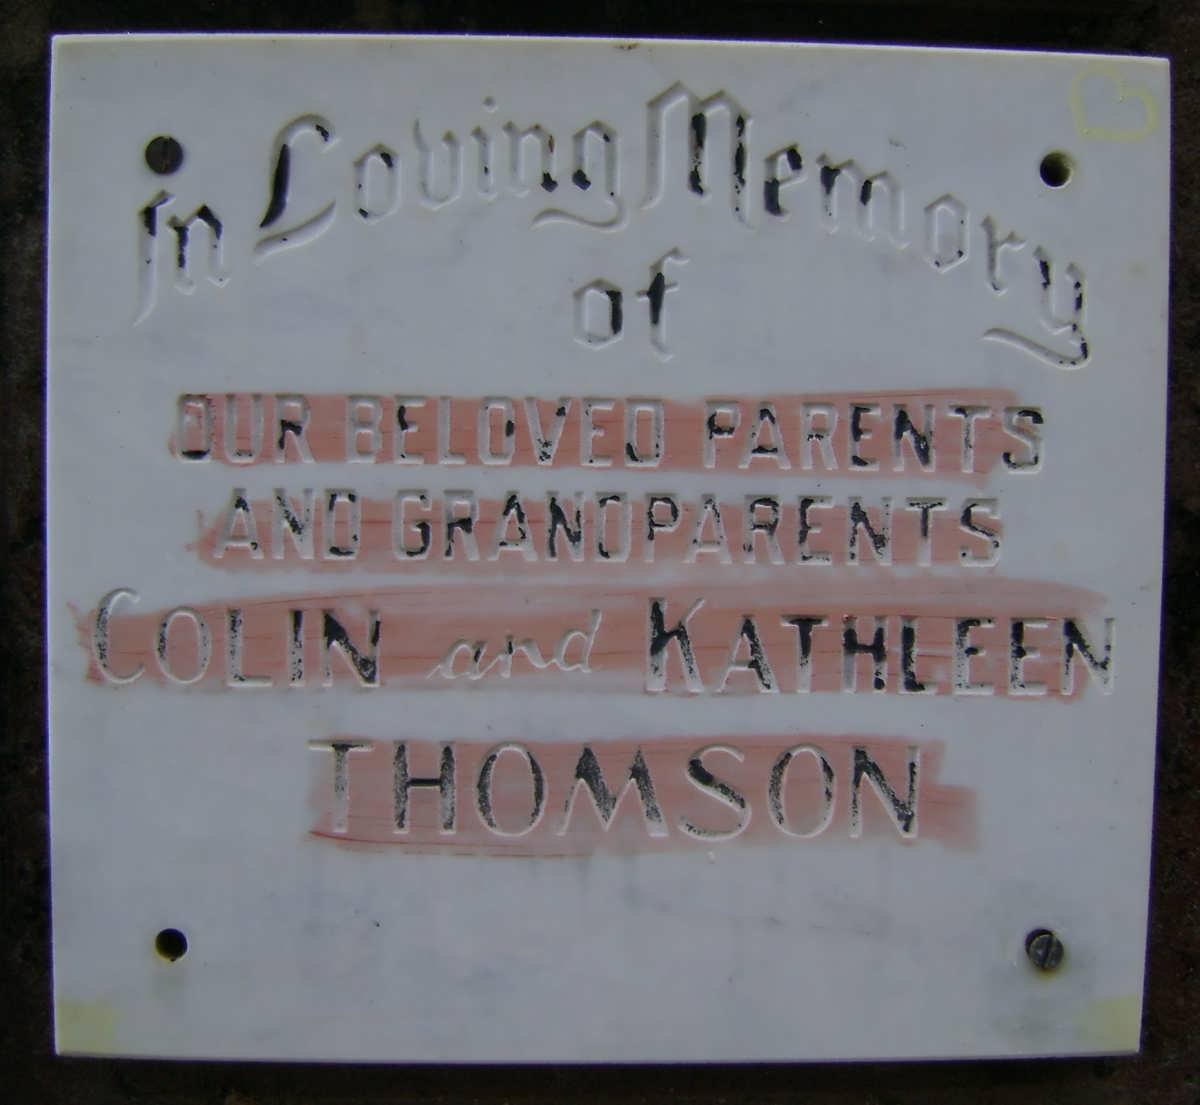 In Loving Memory
of
OUR BELOVED PARENTS
AND GRANDPARENTS
COLIN and KATHLEEN
THOMSON